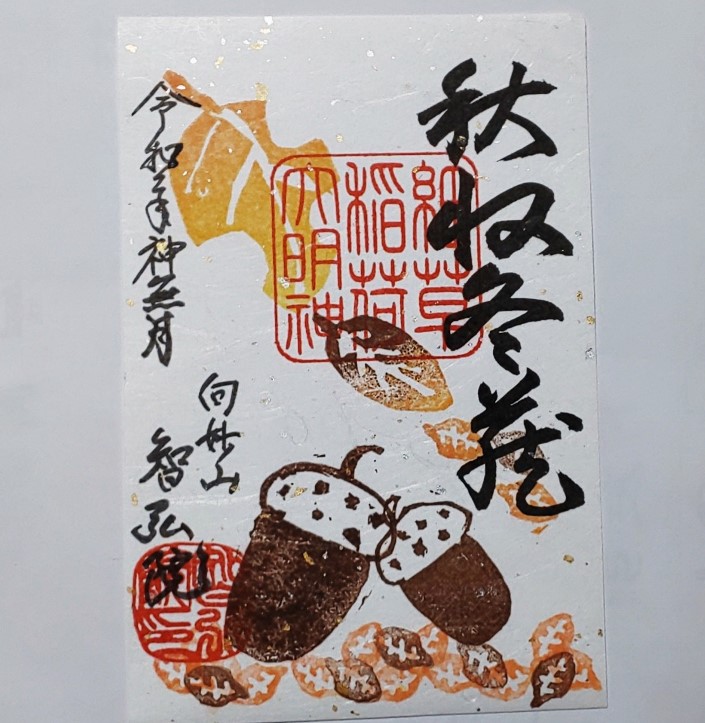 秋収冬蔵
稲荷
大明神
令和二年神無月
向妙山
智弘院